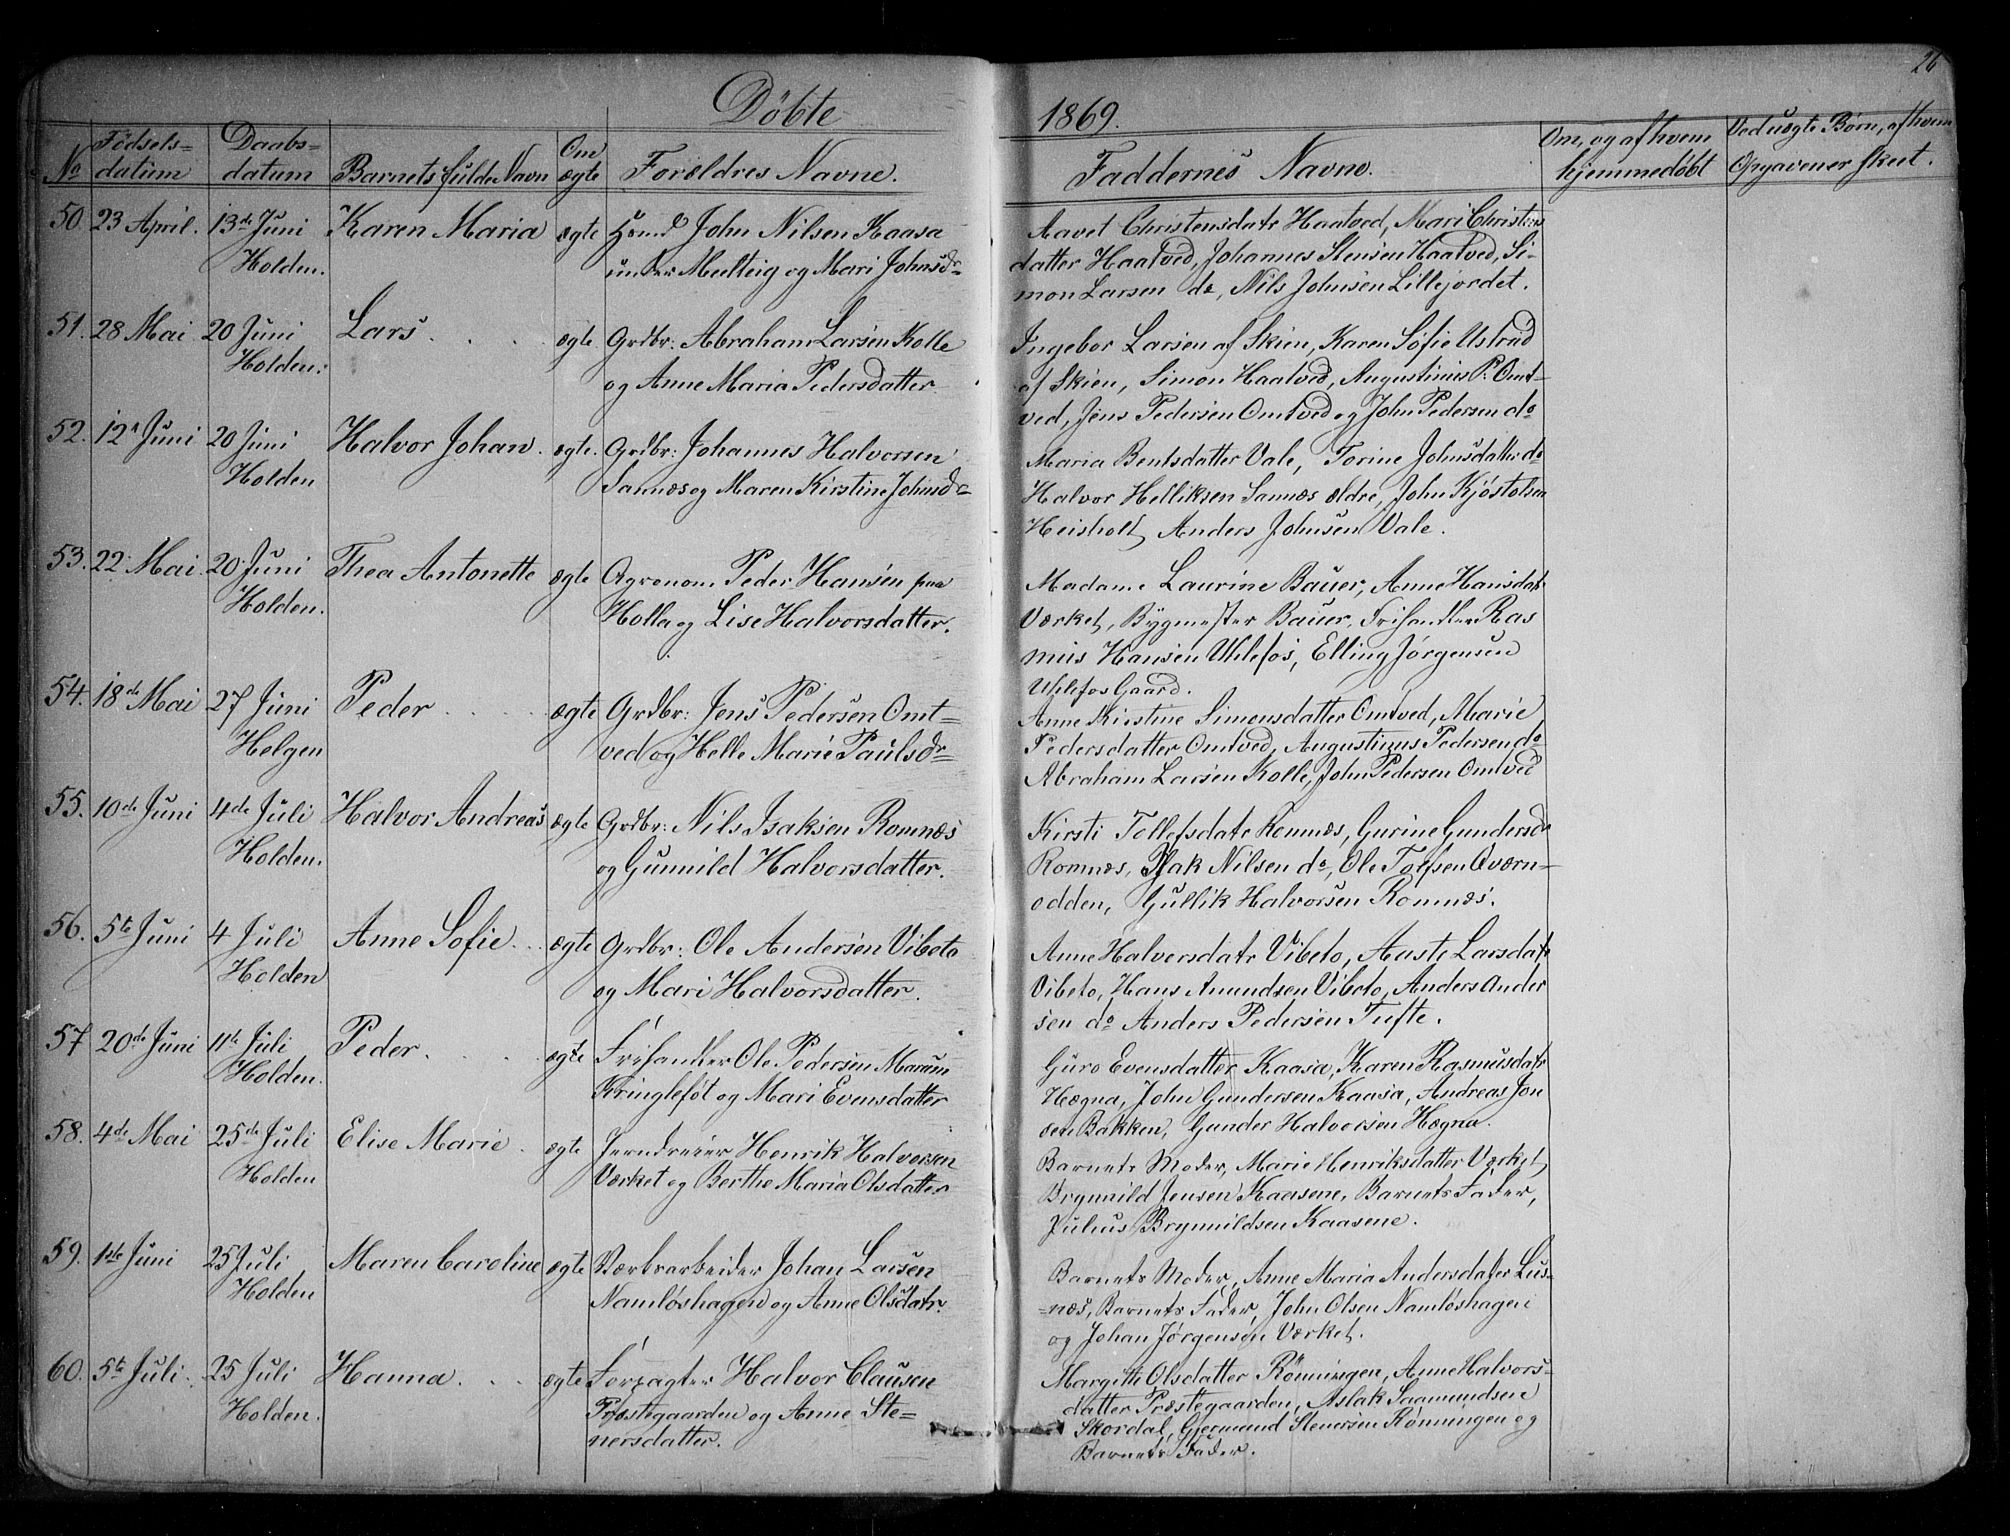 26
Döbte
1869.
No
Fødsels=
datum
Daabs=
datum
Barnets fulde Navn
Om
ægte
Forældres Navne.
Faddernes Navne.
Om, og af hvem
hjemmedøbt
Ved uægte Børn, af hvem
Opgaven er skeet.
50. 23 April. 13de Juni Karen Maria ægte Hsmd John Nilsen Kaasa
Holden. under Melteig og Mari Johnsdr
Aavet Christensdatr Haatved, Mari Christens
datter Haatved, Johannes Stensen Haatved, Si=
mon Larsen do, Nils Johnsen Lillejordet.
51. 28 Mai 20 Juni Lars ægte Grdbr: Abraham Larsen Kolle
Holden. og Anne Maria Pedersdatter
Ingebor Larsen af Skien, Karen Sofie Ustrud
af Skien, Simon Haatved, Augustinus P. Omt=
ved, Jens Pedersen Omtved og John Pedersen do
52. 12te Juni 20 Juni Halvor Johan. ægte. Grdbr: Johannes Halvorsen
Holden Sannæs og Maren Kirstine Johnsdr
Maria Bentsdatter Vale, Torine Johnsdatter do
Halvor Helliksen Sannæs ældre, John Kjøstolsen
Heisholt, Anders Johnsen Vale.
53. 22 Mai 20 Juni Thea Antonette ægte Agronom Peder Hansen paa
Holden. Holla og Lise Halvorsdatter.
Madame Laurine Bauer, Anne Hansdatr
Værket, Bygmester Bauer, Frihandler Ras
mus Hansen Uhlefos, Elling Jørgensen
Uhlefos Gaard.
54. 18de Mai 27 Juni Peder ægte Grdbr: Jens Pedersen Omt=
Helgen ved og Helle Marie Paulsdr
Anne Kirstine Simonsdatter Omtved, Marie
Pedersdatter Omtved, Augustinus Pedersen do
Abraham Larsen Kolle, John Pedersen Omtved
55. 10de Juni 4de Juli Halvor Andreas ægte Grdbr: Nils Isaksen Romnæs
Holden. og Gunnild Halvorsdatter.
Kirsti Tollefsdatr Romnæs, Gurine Gundersdr
Romnæs, Isak Nilsen do, Ole Tolfsen Qværn=
odden, Gullik Halvorsen Romnæs.
56. 5te Juni 4 Juli Anne Sofie ægte Grdbr: Ole Andersen Vibeto
Holden og Mari Halvorsdatter.
Anne Halvorsdatr Vibeto, Aaste Larsdatr
Vibeto, Hans Amundsen Vibeto, Anders Ander
sen do Anders Pedersen Tufte.
57 20de Juni 11te Juli Peder. ægte Frihandler Ole Pedersen
Holden. Kringlefot og Mari Evensdatter
Guro Evensdatter Kaasa, Karen Rasmusdatr
Hægna, John Gundersen Kaasa, Andreas Jon
sen Bakken, Gunder Halvorsen Hægna.
58. 4de Mai 25de Juli Elise Marie. ægte Jerndreier Henrik Halvorsen
Holden Værket og Berthe Maria Olsdatter
Barnets Moder, Marie Henriksdatter Værket,
Brynnild Jensen Kaasene, Barnets Fader,
Julius Brynnildsen Kaasene.
59. 1ste Juni 25 Juli Maren Caroline ægte Værksarbeider Johan Larsen
Holden Namløshagen og Anne Olsdatr.
Barnets Moder, Anne Maria Andersdatter Lus=
=næs, Barnets Fader, John Olsen Namløshagen
og Johan Jørgensen Værket.
60. 5te Juli. 25 Juli Hanna. ægte Forpagter Halvor Clausen
Holden. Præstegaarden og Anne Ste=
nersdatter.
Margithe Olsdatter Rönningen, Anne Halvors=
datter Præstegaarden, Aslak Saamundsen
Skordal, Gjermund Stenersen Rønningen og
Barnets Fader.